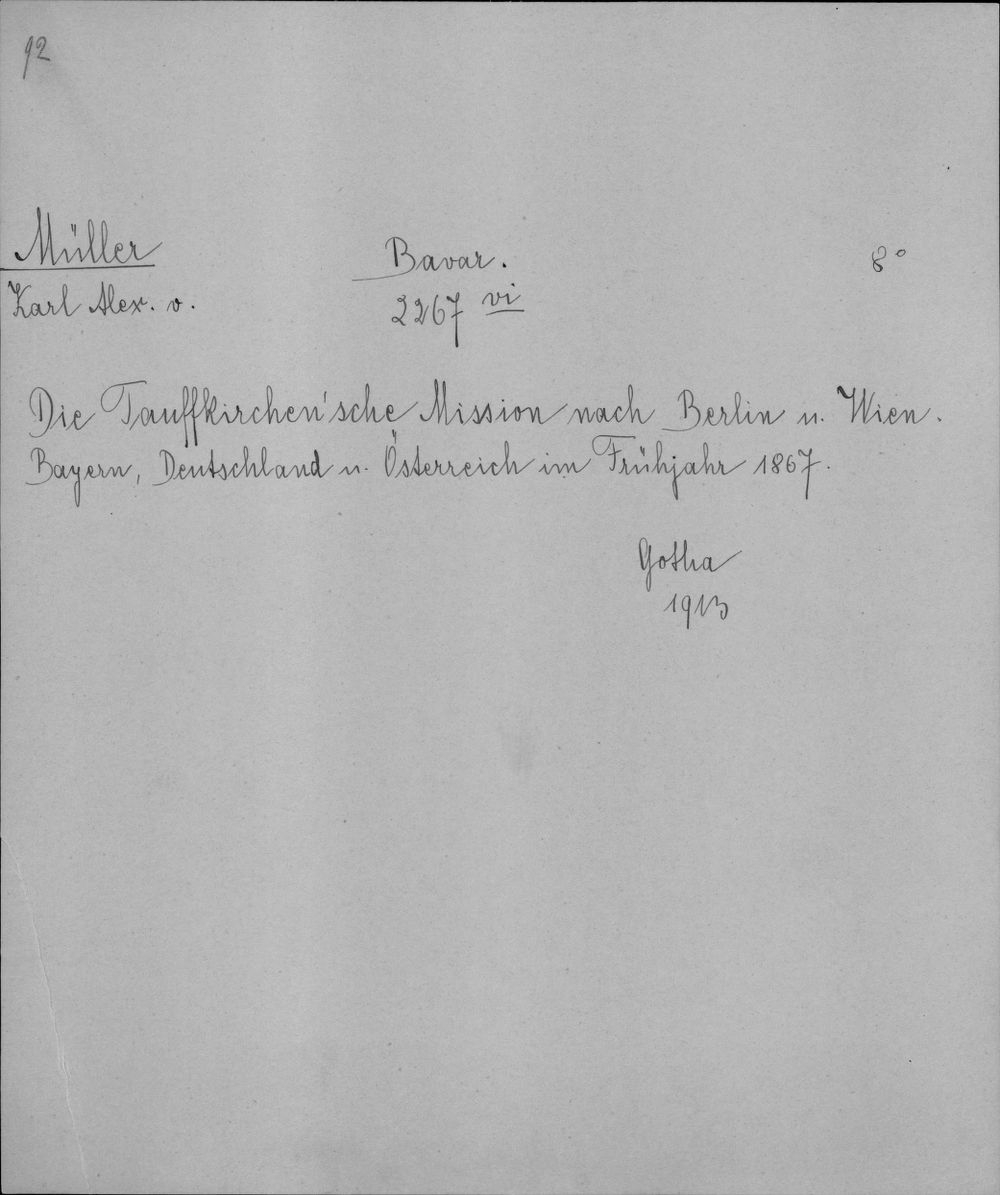 92
Müller Bavar. 8°
Karl Alex. v. 2267 vi
Die Tauffkirchen'sche Mission nach Berlin u. Wien.
Bayern, Deutschland u. Österreich im Frühjahr 1867.
Gotha
1913